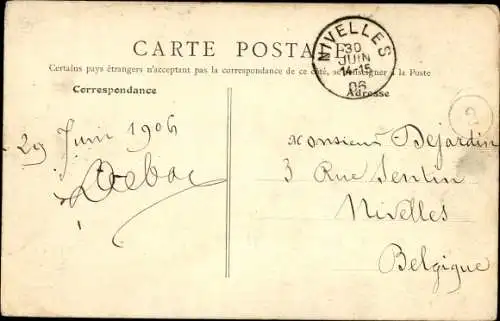 CARTE POSTALE
NIVELLES
30
JUIN
14-15
06
Certains pays étrangers n'acceptant pas la correspondance de ce côté, se renseigner à la Poste
Correspondance
Adresse
2
29 Juin 1906
Monsieur Dejardin
3 Rue Sentin
Nivelles
Belgique